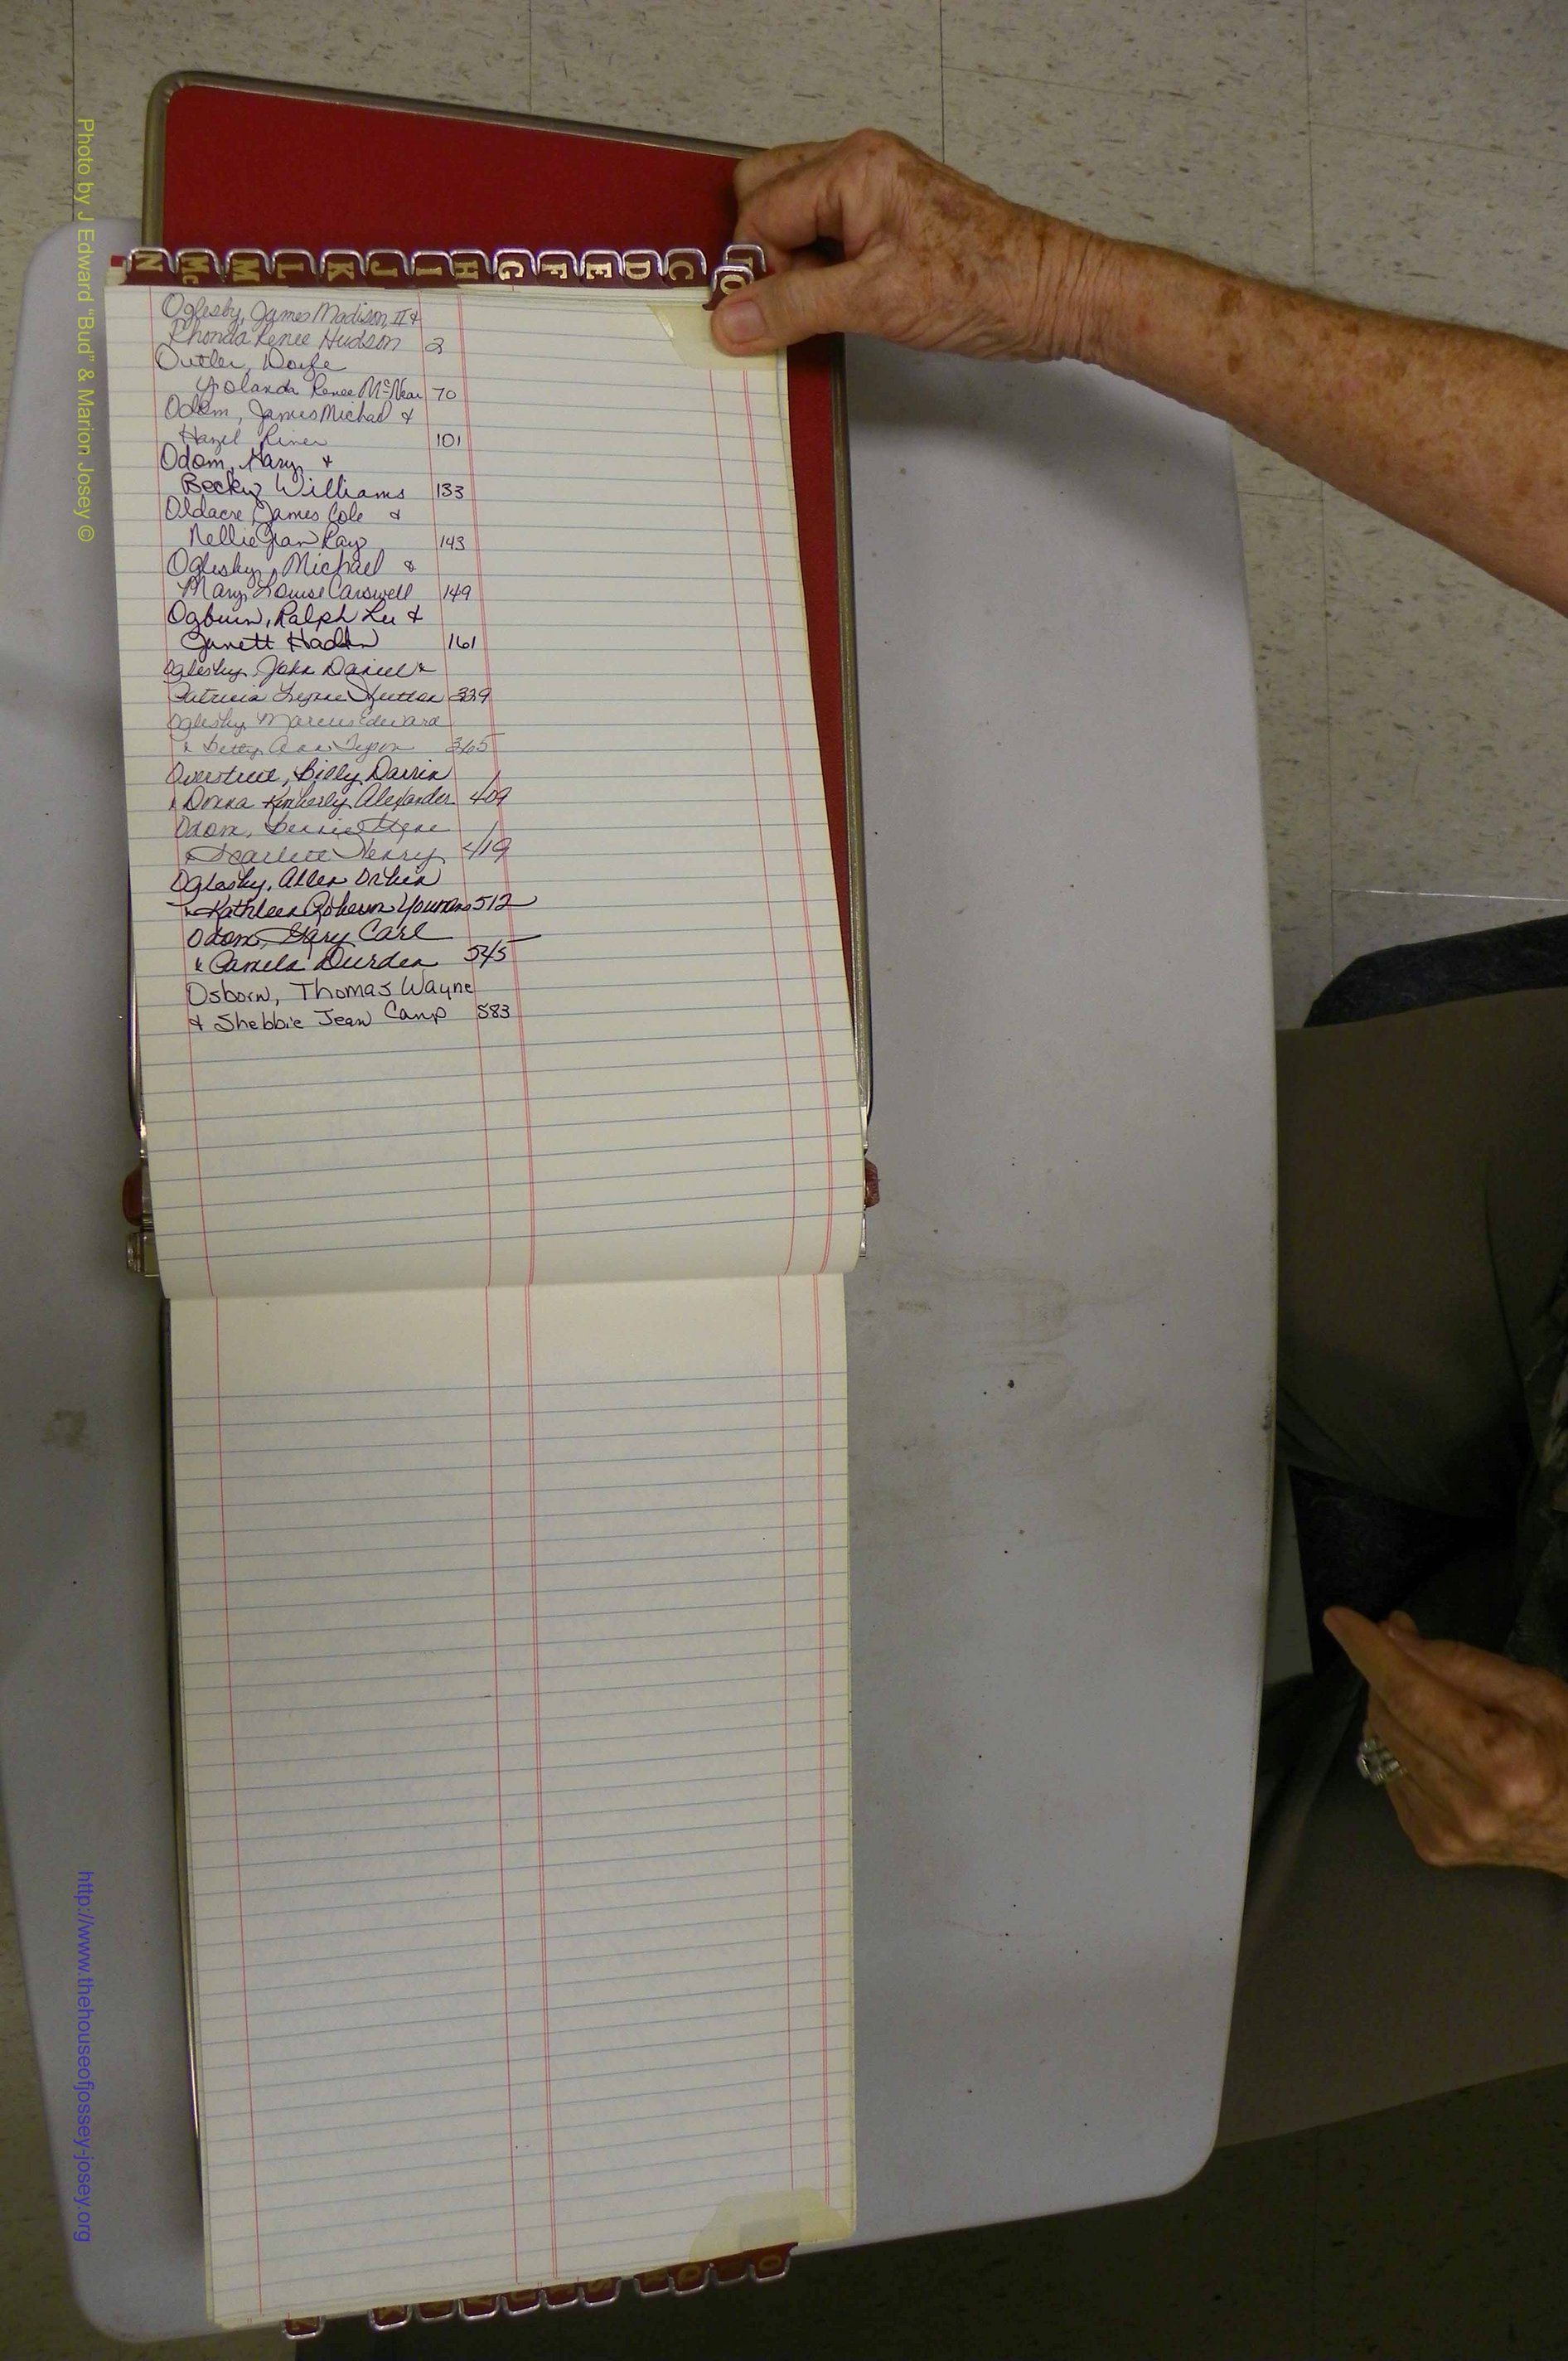 N Mc M L K J I H G F E D C O
Oglesby, James Madison, II &
Rhonda Renee Hudson 2
Outler, Doyle
Yolanda Renee McNear 70
Odom, James Michael &
Hazel Riner 101
Odom, Harry &
Becky Williams 133
Oldacre, James Cole &
Nellie Jean Ray 143
Oglesby, Michael &
Mary Louise Carswell 149
Ogburn, Ralph Lee &
Janett Hadden 161
Oglesby, John Daniel &
Patricia Lynne Hutton 339
Oglesby, Marcus Edward
& Betty Ann Tyson 365
Overstreet, Billy Darrin
& Donna Kimberly Alexander 409
Odom, Gene
Scarlett Henry 419
Oglesby, Allen
& Kathleen Youmans 512
Odom, Gary Carl
& Pamela Durden 545
Osborn, Thomas Wayne
& Shebbie Jean Camp 583
Photo by J Edward "Bud" & Marion Josey ©
http://www.thehouseofjossey-josey.org